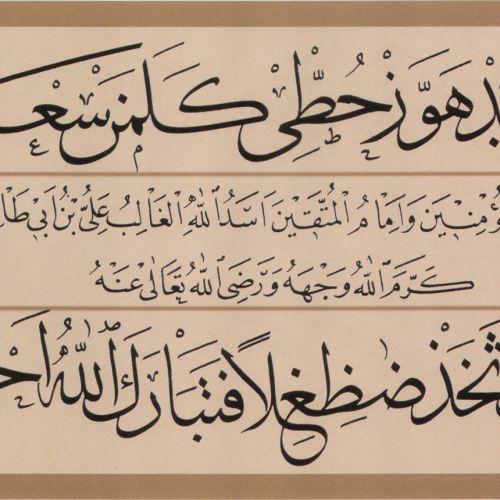 هَوَّزْ حُطِّي كَلَمَنْ
وَاِمَامُ الْمُتَّقِينَ اَسَدُ اللّٰهِ الْغَالِبُ عَلِيُّ بْنُ اَبِي
كَرَّمَ اللّٰهُ وَجْهَهُ وَرَضِيَ اللّٰهُ تَعَالٰى عَنْهُ
ثَخَذْ ضَظِغِلاً فَتَبَارَكَ اللّٰهُ